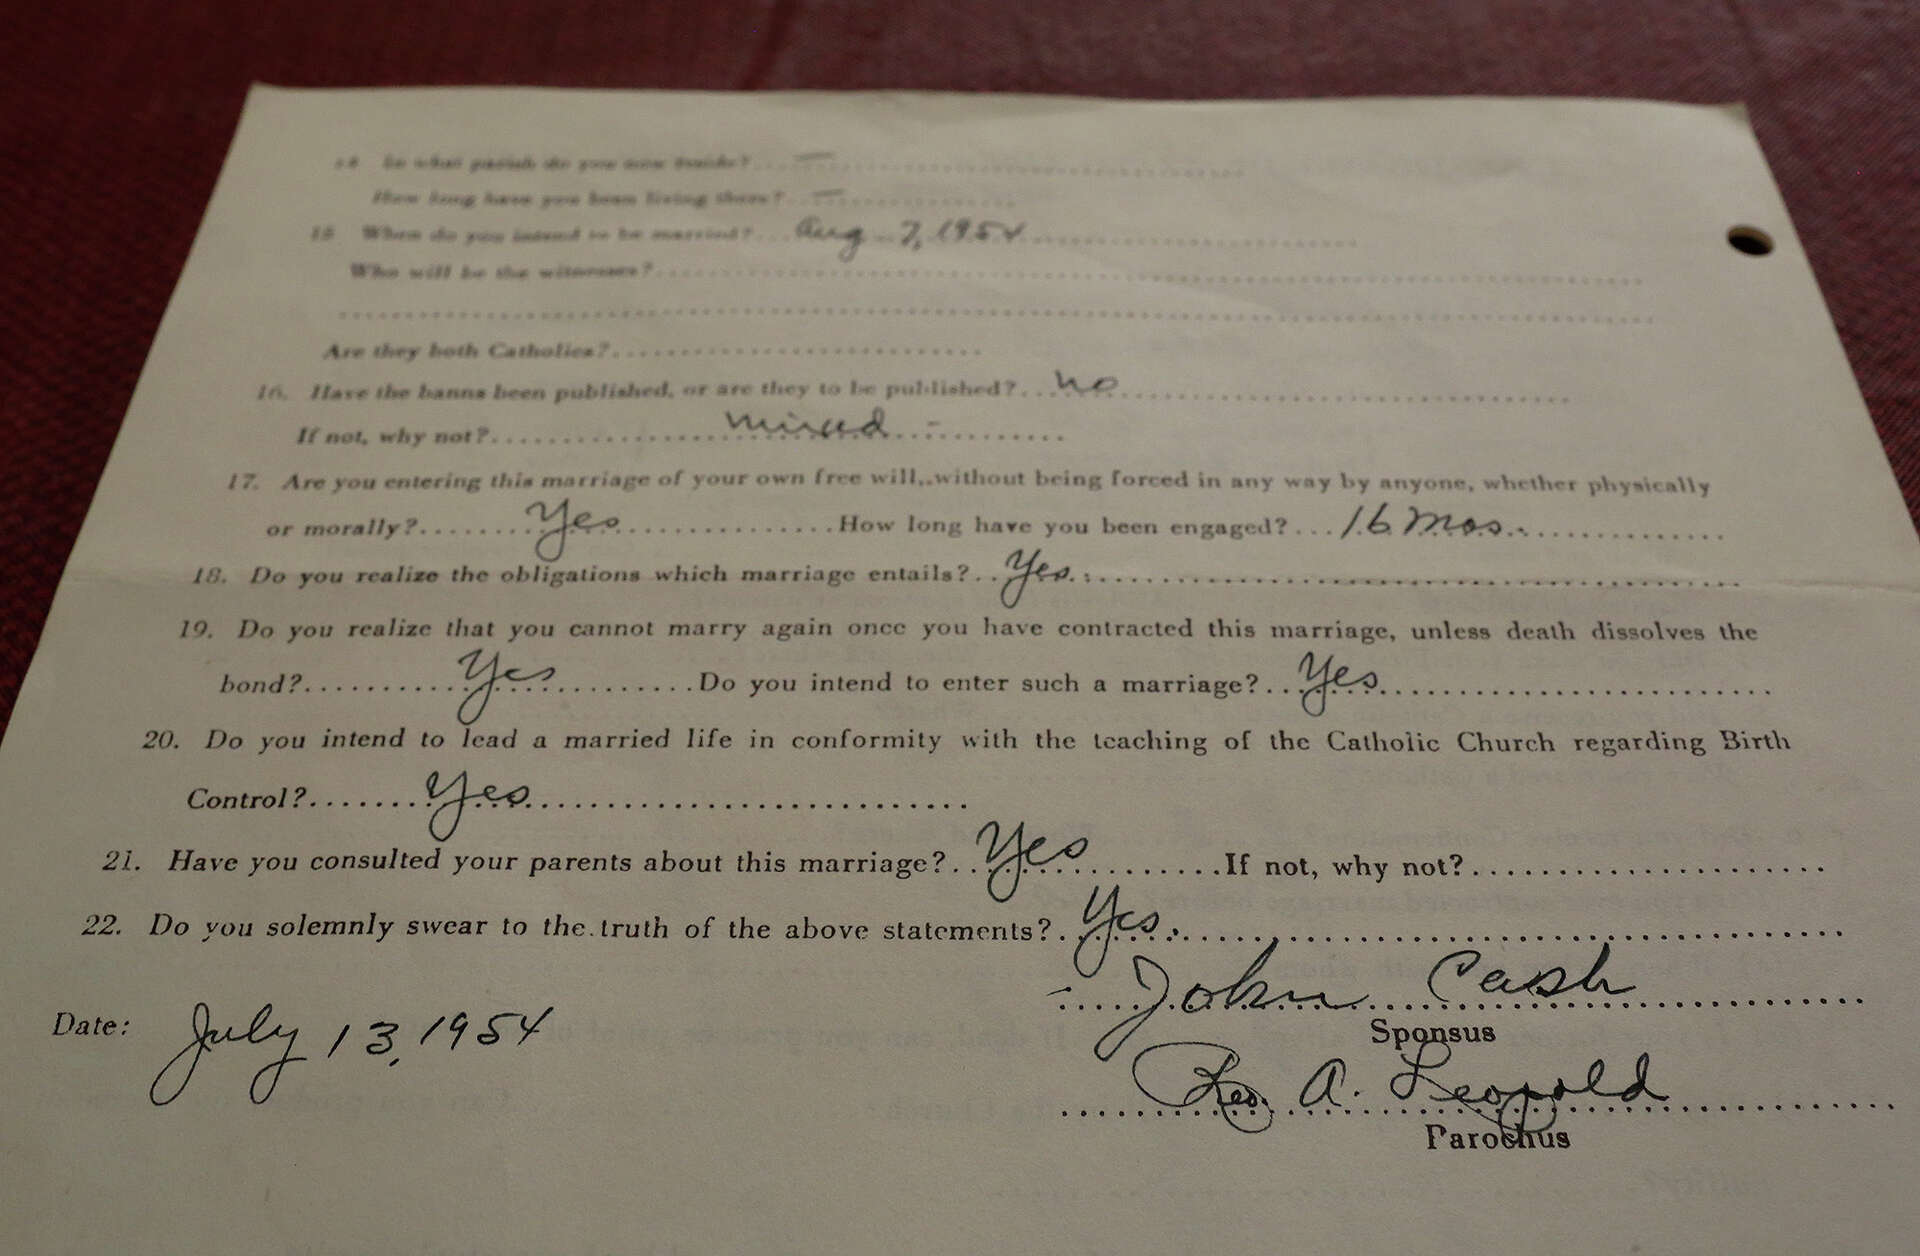 14 In what parish do you now reside?.... —
How long have you been living there?.... —
15 When do you intend to be married?... Aug 7, 1954
Who will be the witnesses?
Are they both Catholics?
16. Have the banns been published, or are they to be published?... no
If not, why not?... mixed -
17. Are you entering this marriage of your own free will,..without being forced in any way by anyone, whether physically
or morally?........Yes................How long have you been engaged?...16 mos.
18. Do you realize the obligations which marriage entails?..Yes.
19. Do you realize that you cannot marry again once you have contracted this marriage, unless death dissolves the
bond?..........Yes............Do you intend to enter such a marriage?..Yes
20. Do you intend to lead a married life in conformity with the teaching of the Catholic Church regarding Birth
Control?.......Yes
21. Have you consulted your parents about this marriage?..Yes..............If not, why not?
22. Do you solemnly swear to the truth of the above statements?.Yes.
John Cash
Sponsus
Date: July 13, 1954
Rev. A. Leopold
Parochus